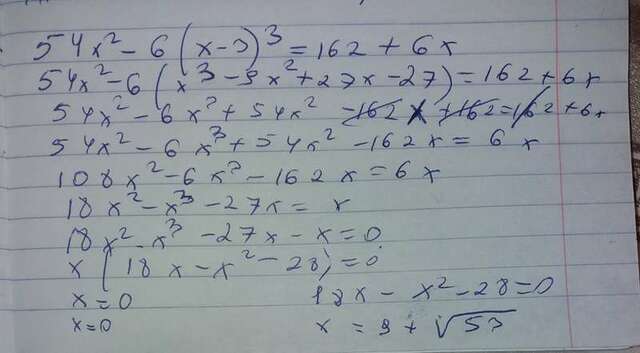 54x² - 6(x-3)³ = 162 + 6x
54x² - 6(x³ - 9x² + 27x - 27) = 162 + 6x
54x² - 6x³ + 54x² - 162x + 162 = 162 + 6x
54x² - 6x³ + 54x² - 162x = 6x
108x² - 6x³ - 162x = 6x
18x² - x³ - 27x = x
18x² - x³ - 27x - x = 0
x(18x - x² - 28) = 0
x = 0 18x - x² - 28 = 0
x = 0 x = 9 + √53